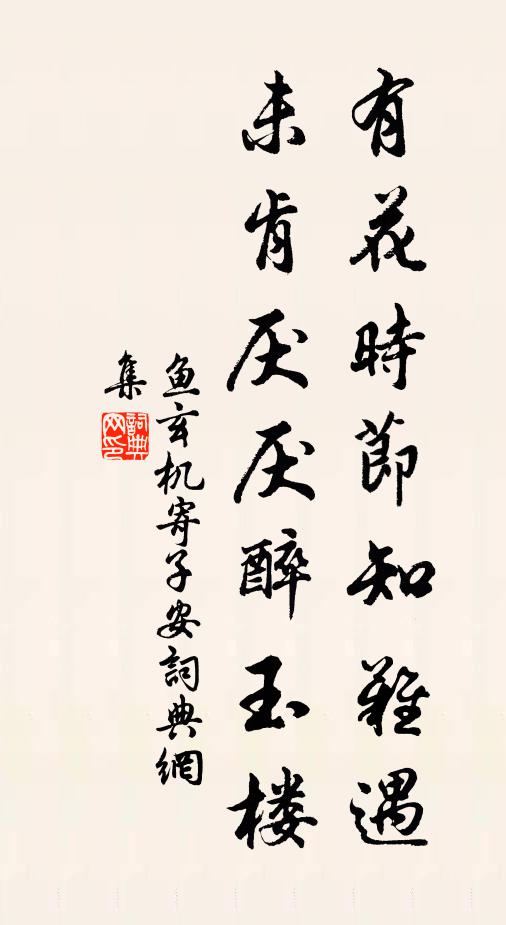 有花時節知難遇
未肯厌厌醉玉楼
鱼玄机寄子安詞典網
集
詞典网印